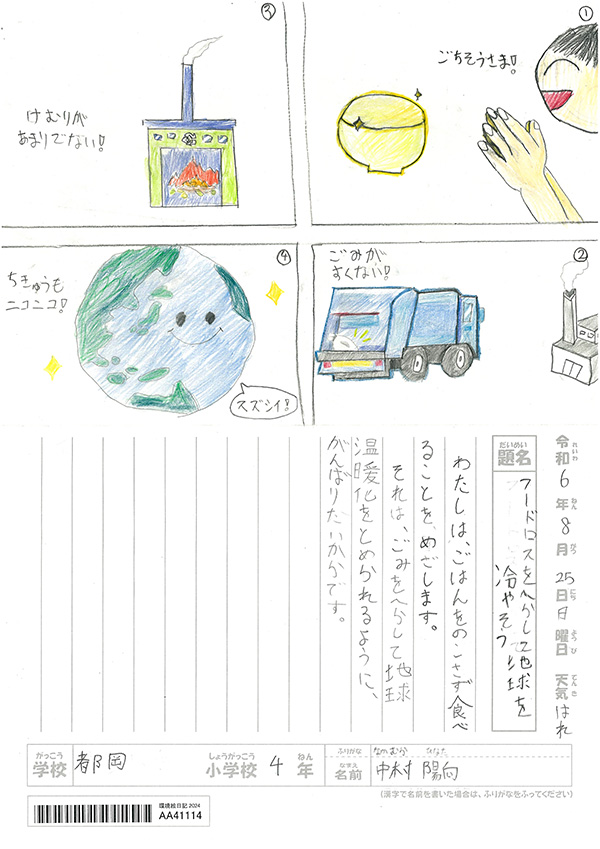 ①
ごちそうさま!
②
ごみが
すくない!
③
けむりが
あまりでない!
④
ちきゅうも
ニコニコ!
スズシイ!
令和6年8月25日日曜日 天気はれ
れいわ ねん がつ にち ようび てんき
だいめい
題名
フードロスをへらして地球を
冷やそう
わたしは、ごはんをのこさず食べ
ることを、めざします。
それは、ごみをへらして地球
温暖化をとめられるように、
がんばりたいからです。
がっこう しょうがっこう ねん ふりがな なかむら ひなた
学校 都岡 小学校 4年 なまえ 名前 中村 陽向
(漢字で名前を書いた場合は、ふりがなをふってください)
環境絵日記 2024
AA41114